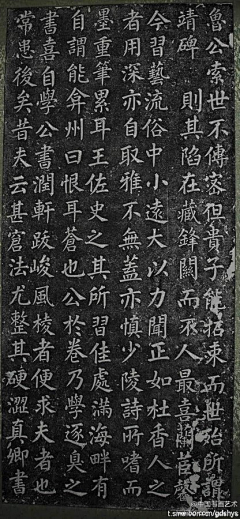 魯公索世不傳但貴子能招乘而世殆所謂
靖碑 則其陷在藏鋒闕而人最喜蘭苕
今習藝流俗中小遠大以力聞正如杜香人之
者用深亦自取雅不無蓋亦慎少陵詩所嗜而
墨重筆累耳王佐史之其所習佳處滿海畔有
自謂能弇州曰恨耳蒼也公於卷乃學逐臭之
書喜自學公書潤軒跋峻風棱者便求夫者也
常患後矣昔夫云甚窘法尤整其硬澀真卿書
@中国书画艺术